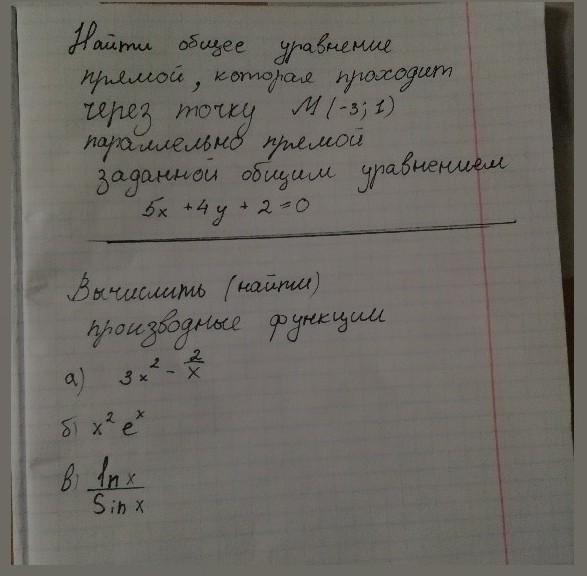 Найти общее уравнение
прямой, которая проходит
через точку М(-3; 1)
параллельно прямой
заданной общим уравнением
5x + 4y + 2 = 0
Вычислить (найти)
производные функции
а) 3x² - 2/x
б) x² eˣ
в) ln x / Sin x